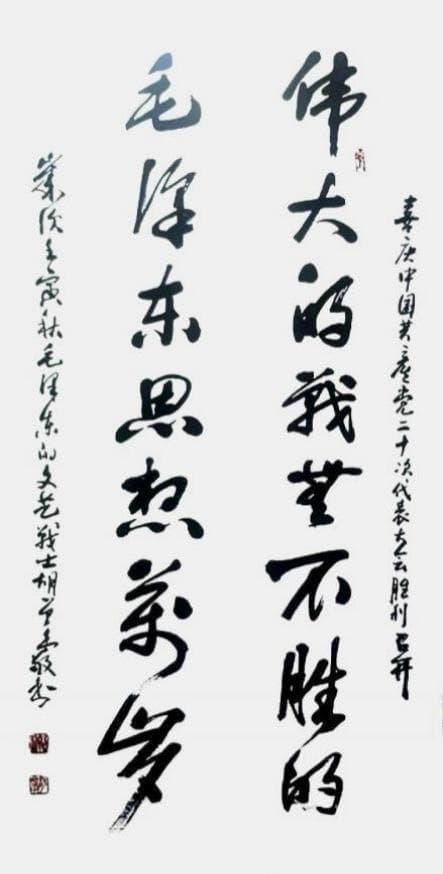 喜庆中国共产党二十次代表大会胜利召开
伟大的战无不胜的
毛泽东思想万岁
岁次壬寅秋毛泽东的文艺战士胡敬书